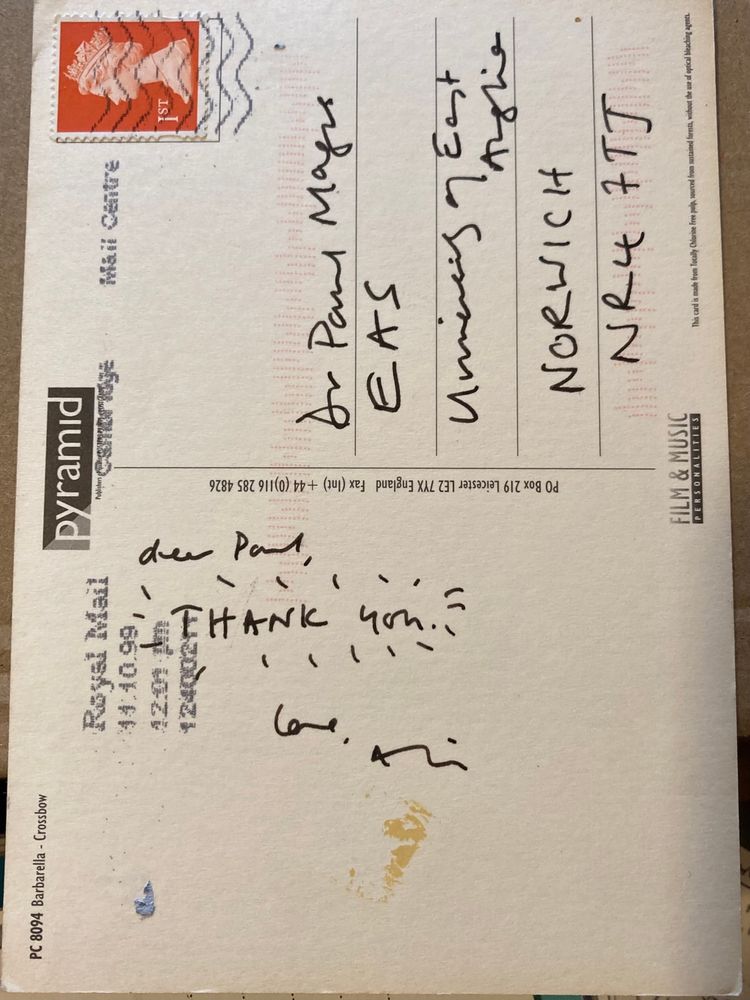 PC 8094 Barbarella - Crossbow
pyramid
Royal Mail
11.10.99
12:01 pm
Cambridge Mail Centre
1ST
dear Paul,
THANK YOU!!
Love,
PO Box 219 Leicester LE2 7YX England Fax (Int) + 44 (0)116 285 4826
Dr Paul Magrs
EAS
University of East
Anglia
NORWICH
NR4 7TJ
FILM & MUSIC
PERSONALITIES
This card is made from Totally Chlorine Free pulp, sourced from sustained forests, without the use of optical bleaching agents.